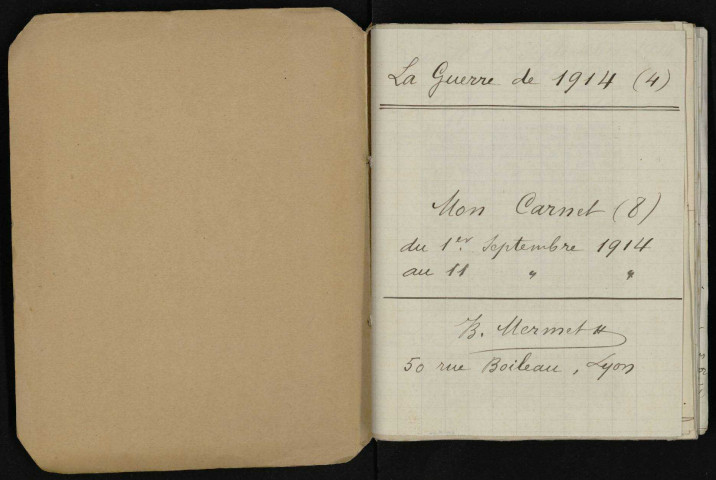 La Guerre de 1914 (4)
Mon Carnet (8)
du 1er Septembre 1914
au 11 " "
B. Mermet
50 rue Boileau, Lyon